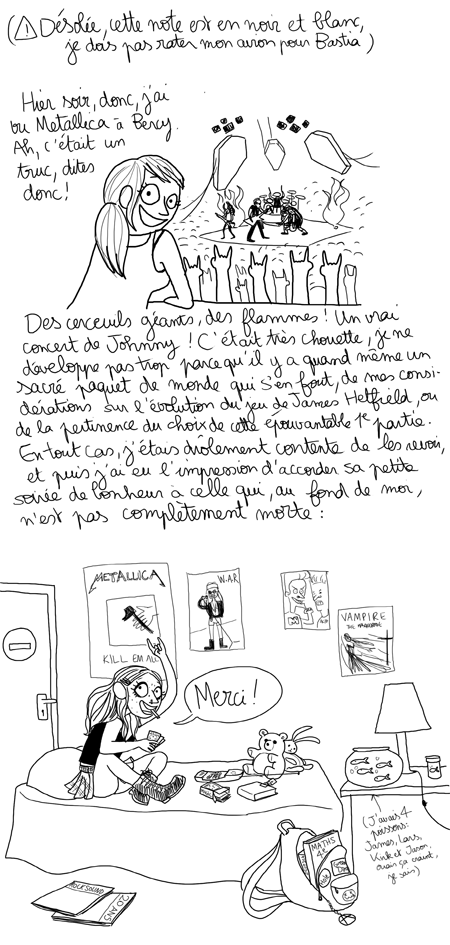 (⚠ Désolée, cette note est en noir et blanc,
je dois pas rater mon avion pour Bastia)
Hier soir, donc, j'ai
vu Metallica à Bercy.
Ah, c'était un
truc, dites
donc !
Des cercueuils géants, des flammes ! Un vrai
concert de Johnny ! C'était très chouette, je ne
développe pas trop parce qu'il y a quand même un
sacré paquet de monde qui s'en fout, de mes consi-
dérations sur l'évolution du jeu de James Hetfield, ou
de la pertinence du choix de cette épouvantable 1e partie.
En tout cas, j'étais drôlement contente de les revoir,
et puis j'ai eu l'impression d'accorder sa petite
soirée de bonheur à celle qui, au fond de moi,
n'est pas complètement morte :
METALLICA
KILL EM ALL
W.A.R
VAMPIRE
THE
Merci !
MATHS
4e
(J'avais 4
poissons:
James, Lars,
Kirk et Jason,
ouais ça craint,
je sais)
ROCKSOUND
20 ANS